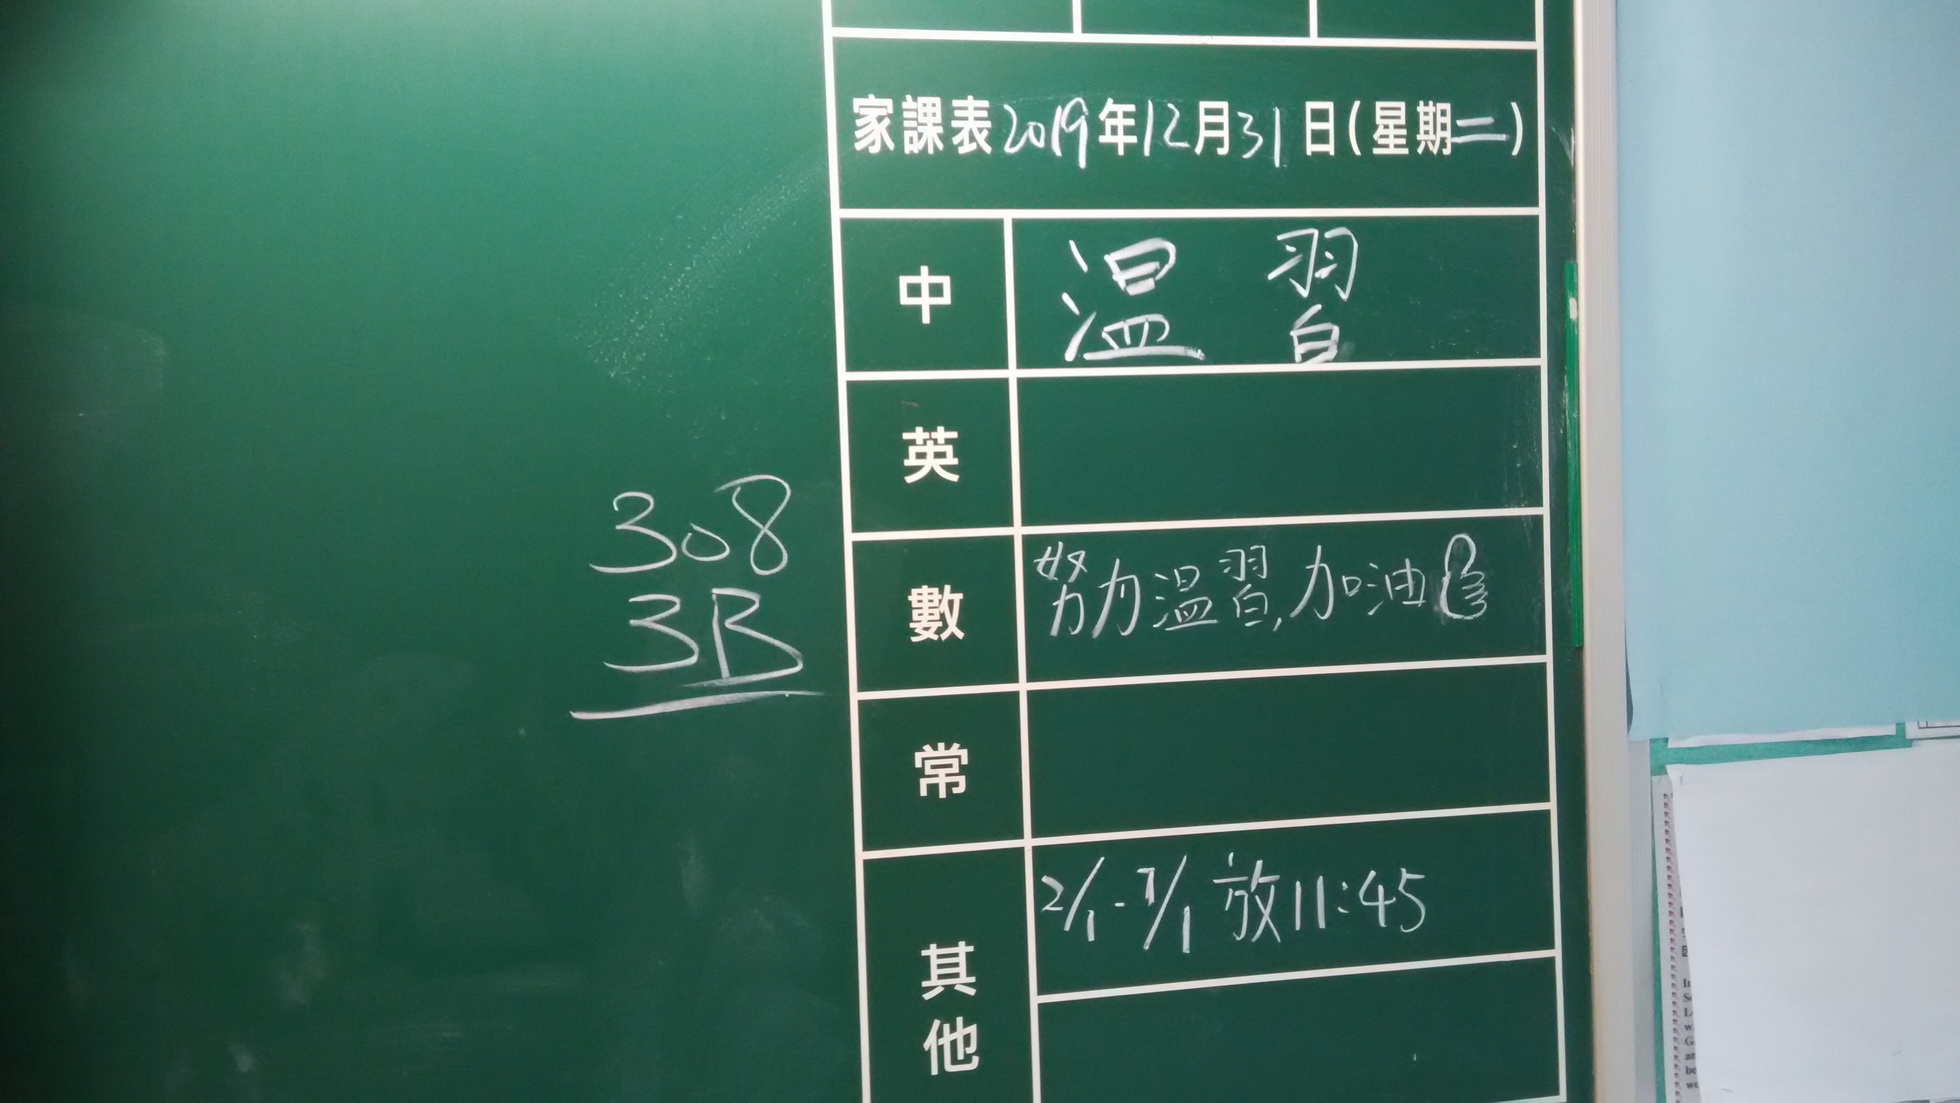 家課表2019年12月31日(星期二)
中 温習
英
數 努力温習,加油
常
其他 2/1-7/1 放11:45
308
3B